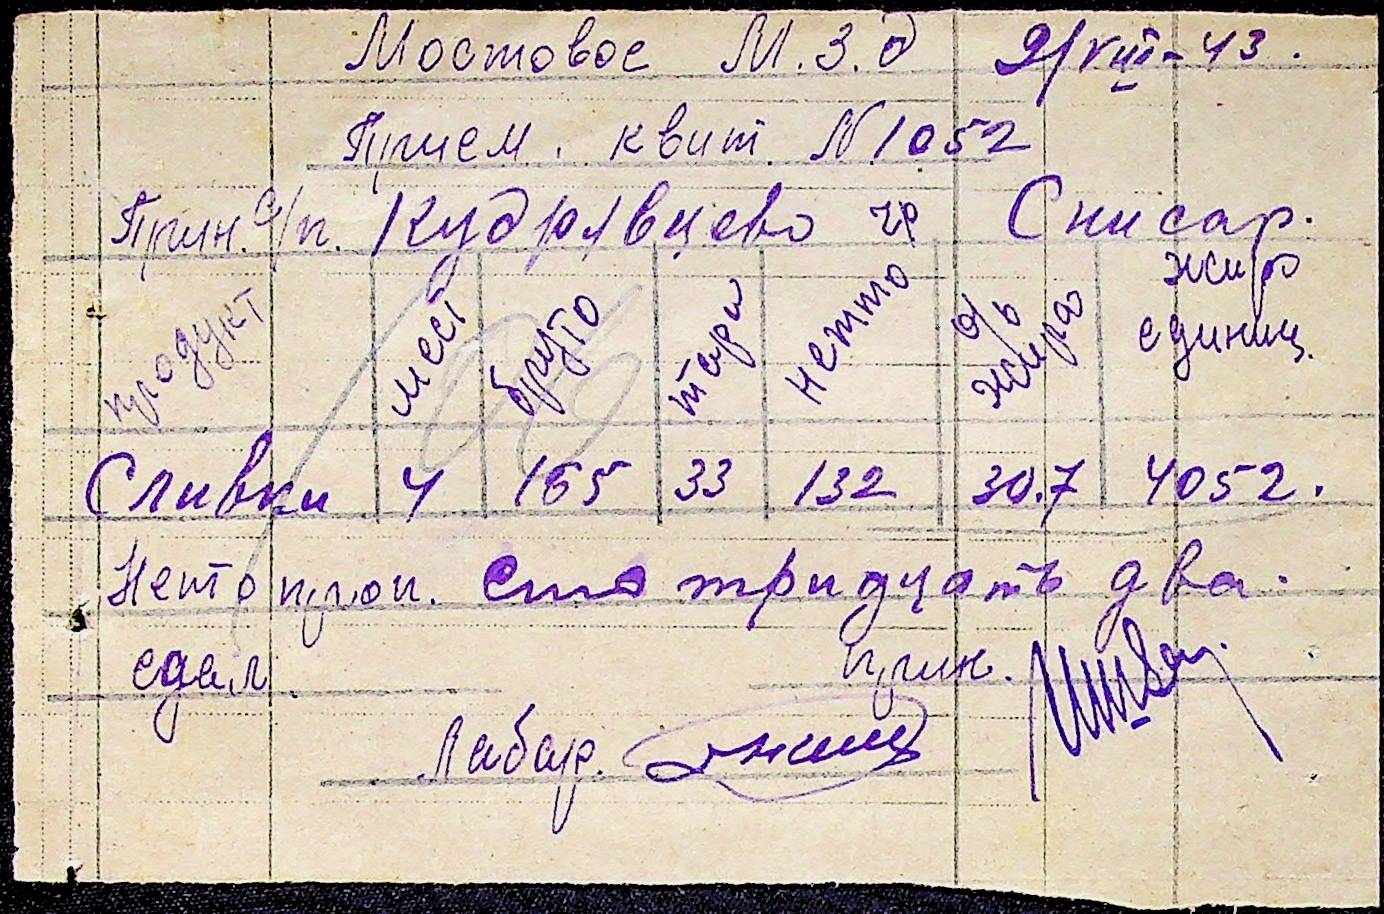 Мостовое М.З.д 2/VIII-43.
Прием. квит. N1052
Прин. с/п. Кудрявцево гр Снисар.
продукт мест бруто тара нетто % жира жиро единиц.
Сливки 4 165 33 132 30.7 4052.
Нетто проп. сто тридцать два.
сдал. прин.
Лабор.